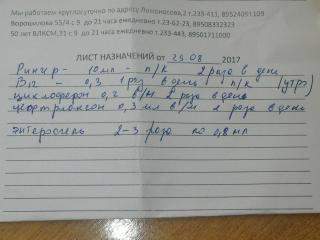 Мы работаем круглосуточно по адресу Ломоносова,2 т.233-411, 89524091109
Ворошилова 55/4 с 9 до 21 часа ежедневно т.23-62-23, 89508332323
50 лет ВЛКСМ,31 с 9 до 21 часа ежедневно т.233-443, 89501711000
ЛИСТ НАЗНАЧЕНИЙ от 29 08 2017
Рингер - 10мл - п/к 2 раза в день
B12 - 0,3 1 раз в день п/к (утро)
циклоферон 0,2 в/м 2 раза в день
цефтриаксон 0,3 мл в/м 2 раза в день
Энтеросгель 2-3 раза по 0,8 мл